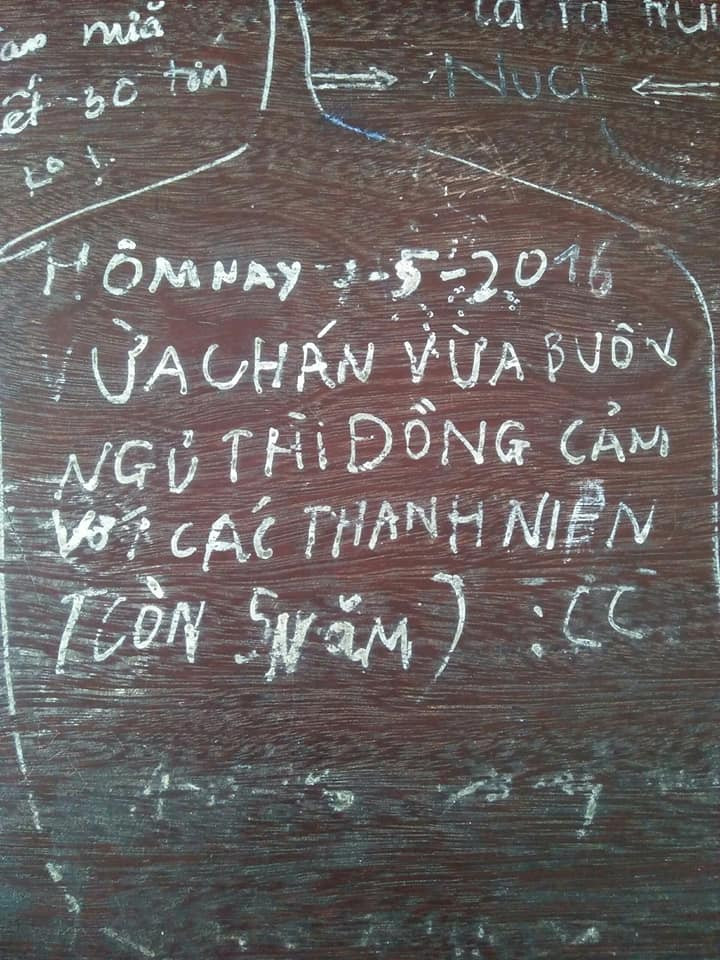 miă
30 tấn
là rà
NUCI
HÔM NAY -5-2016
ỪA CHÁN VỪA BUỒN
NGỦ THÌ ĐỒNG CẢM
VỚI CÁC THANH NIÊN
(CÒN 5 NĂM) :((